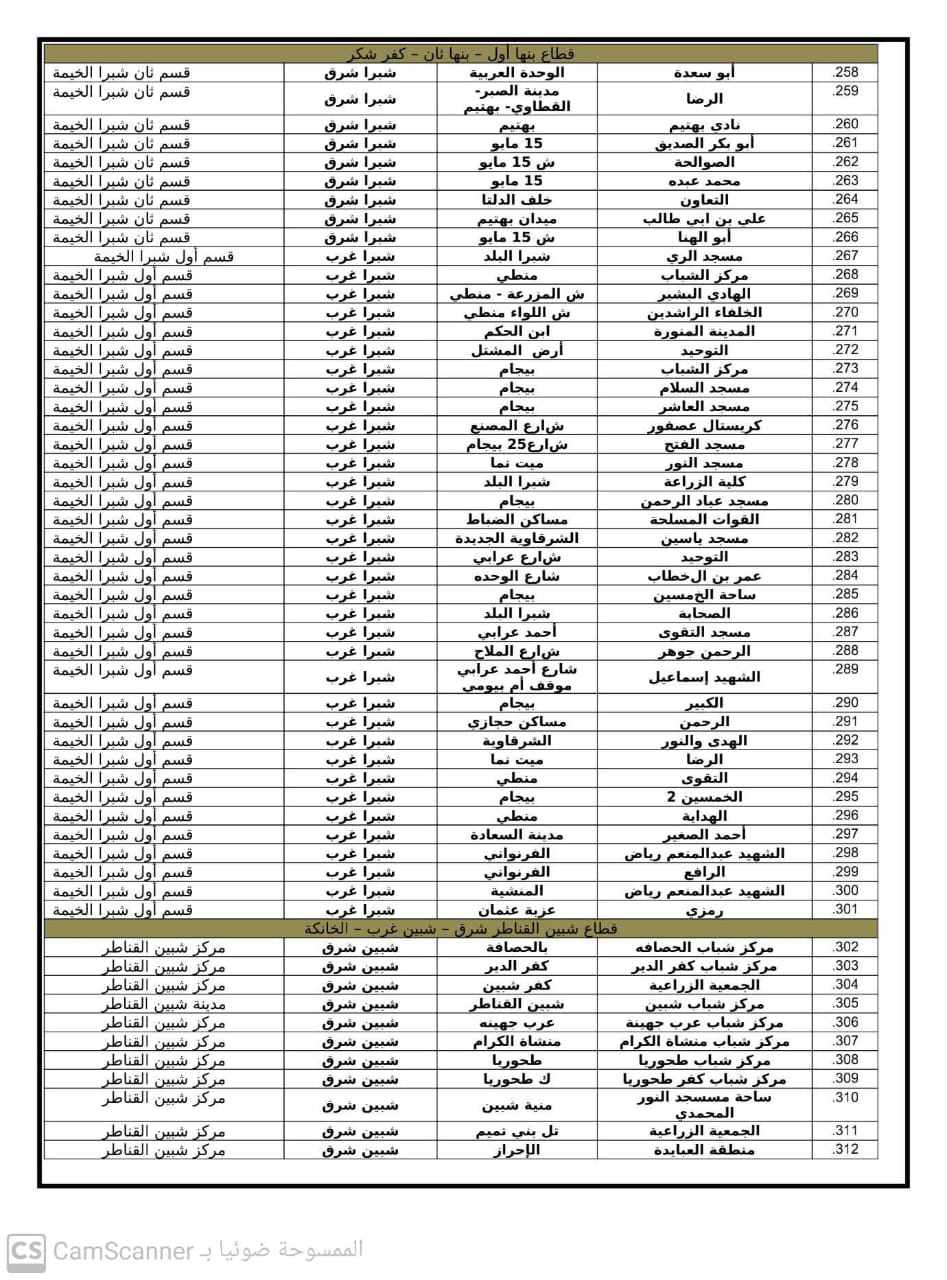 قطاع بنها أول – بنها ثان – كفر شكر
258. أبو سعدة الوحدة العربية شبرا شرق قسم ثان شبرا الخيمة
259. الرضا مدينة الصبر- القطاوي- بهتيم شبرا شرق قسم ثان شبرا الخيمة
260. نادي بهتيم بهتيم شبرا شرق قسم ثان شبرا الخيمة
261. أبو بكر الصديق 15 مايو شبرا شرق قسم ثان شبرا الخيمة
262. الصوالحة ش 15 مايو شبرا شرق قسم ثان شبرا الخيمة
263. محمد عبده 15 مايو شبرا شرق قسم ثان شبرا الخيمة
264. التعاون خلف الدلتا شبرا شرق قسم ثان شبرا الخيمة
265. على بن ابي طالب ميدان بهتيم شبرا شرق قسم ثان شبرا الخيمة
266. أبو الهنا ش 15 مايو شبرا شرق قسم ثان شبرا الخيمة
267. مسجد الري شبرا البلد شبرا غرب قسم أول شبرا الخيمة
268. مركز الشباب منطي شبرا غرب قسم أول شبرا الخيمة
269. الهادي البشير ش المزرعة - منطي شبرا غرب قسم أول شبرا الخيمة
270. الخلفاء الراشدين ش اللواء منطي شبرا غرب قسم أول شبرا الخيمة
271. المدينة المنورة ابن الحكم شبرا غرب قسم أول شبرا الخيمة
272. التوحيد أرض المشتل شبرا غرب قسم أول شبرا الخيمة
273. مركز الشباب بيجام شبرا غرب قسم أول شبرا الخيمة
274. مسجد السلام بيجام شبرا غرب قسم أول شبرا الخيمة
275. مسجد العاشر بيجام شبرا غرب قسم أول شبرا الخيمة
276. كريستال عصفور شارع المصنع شبرا غرب قسم أول شبرا الخيمة
277. مسجد الفتح شارع25 بيجام شبرا غرب قسم أول شبرا الخيمة
278. مسجد النور ميت نما شبرا غرب قسم أول شبرا الخيمة
279. كلية الزراعة شبرا البلد شبرا غرب قسم أول شبرا الخيمة
280. مسجد عباد الرحمن بيجام شبرا غرب قسم أول شبرا الخيمة
281. القوات المسلحة مساكن الضباط شبرا غرب قسم أول شبرا الخيمة
282. مسجد ياسين الشرقاوية الجديدة شبرا غرب قسم أول شبرا الخيمة
283. التوحيد شارع عرابي شبرا غرب قسم أول شبرا الخيمة
284. عمر بن الخطاب شارع الوحده شبرا غرب قسم أول شبرا الخيمة
285. ساحة الخمسين بيجام شبرا غرب قسم أول شبرا الخيمة
286. الصحابة شبرا البلد شبرا غرب قسم أول شبرا الخيمة
287. مسجد التقوى أحمد عرابي شبرا غرب قسم أول شبرا الخيمة
288. الرحمن جوهر شارع الملاح شبرا غرب قسم أول شبرا الخيمة
289. الشهيد إسماعيل شارع أحمد عرابي موقف أم بيومي شبرا غرب قسم أول شبرا الخيمة
290. الكبير بيجام شبرا غرب قسم أول شبرا الخيمة
291. الرحمن مساكن حجازي شبرا غرب قسم أول شبرا الخيمة
292. الهدى والنور الشرقاوية شبرا غرب قسم أول شبرا الخيمة
293. الرضا ميت نما شبرا غرب قسم أول شبرا الخيمة
294. التقوى منطي شبرا غرب قسم أول شبرا الخيمة
295. الخمسين 2 بيجام شبرا غرب قسم أول شبرا الخيمة
296. الهداية منطي شبرا غرب قسم أول شبرا الخيمة
297. أحمد الصغير مدينة السعادة شبرا غرب قسم أول شبرا الخيمة
298. الشهيد عبدالمنعم رياض الفرنواني شبرا غرب قسم أول شبرا الخيمة
299. الرافع الفرنواني شبرا غرب قسم أول شبرا الخيمة
300. الشهيد عبدالمنعم رياض المنشية شبرا غرب قسم أول شبرا الخيمة
301. رمزي عزبة عثمان شبرا غرب قسم أول شبرا الخيمة
قطاع شبين القناطر شرق – شبين غرب – الخانكة
302. مركز شباب الحصافه بالحصافة شبين شرق مركز شبين القناطر
303. مركز شباب كفر الدير كفر الدير شبين شرق مركز شبين القناطر
304. الجمعية الزراعية كفر شبين شبين شرق مركز شبين القناطر
305. مركز شباب شبين شبين القناطر شبين شرق مدينة شبين القناطر
306. مركز شباب عرب جهينة عرب جهينه شبين شرق مركز شبين القناطر
307. مركز شباب منشاة الكرام منشاة الكرام شبين شرق مركز شبين القناطر
308. مركز شباب طحوريا طحوريا شبين شرق مركز شبين القناطر
309. مركز شباب كفر طحوريا ك طحوريا شبين شرق مركز شبين القناطر
310. ساحة مسسجد النور المحمدي منية شبين شبين شرق مركز شبين القناطر
311. الجمعية الزراعية تل بني تميم شبين شرق مركز شبين القناطر
312. منطقة العبايدة الإحراز شبين شرق مركز شبين القناطر
CS CamScanner الممسوحة ضوئيا بـ